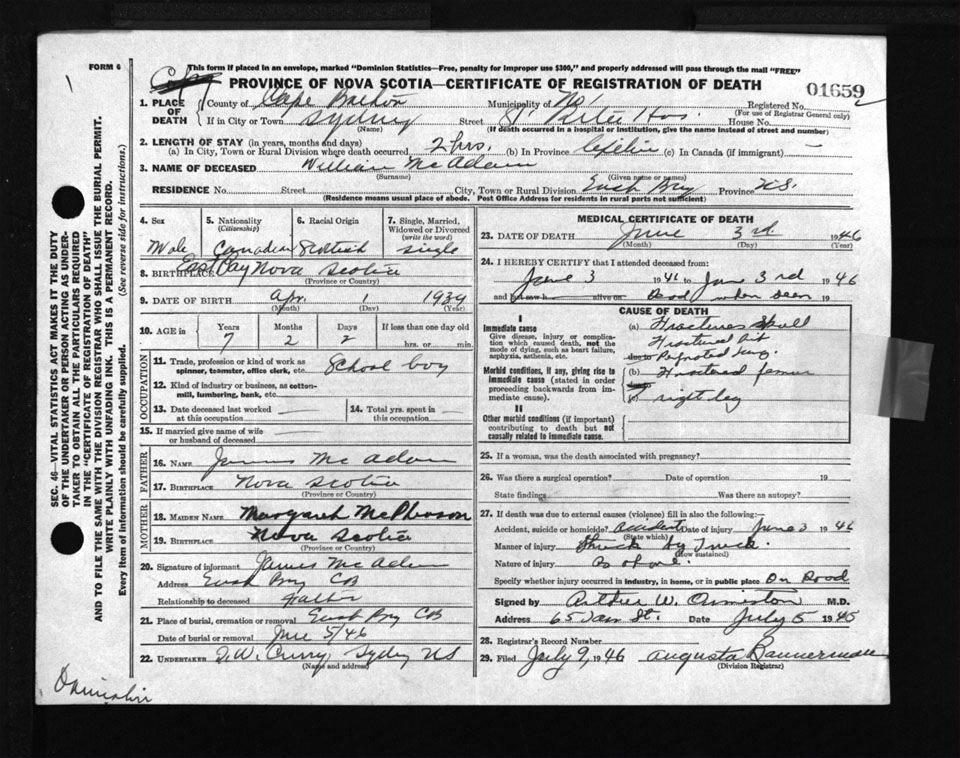 FORM 6
This form if placed in an envelope, marked "Dominion Statistics—Free, penalty for improper use $300," and properly addressed will pass through the mail "FREE"
PROVINCE OF NOVA SCOTIA—CERTIFICATE OF REGISTRATION OF DEATH
01659
1. PLACE OF DEATH
County of Cape Breton Municipality of No 1 Registered No.
(For use of Registrar General only)
If in City or Town Sydney Street St Rita Hos. House No.
(Name) (If death occurred in a hospital or institution, give the name instead of street and number)
2. LENGTH OF STAY (in years, months and days)
(a) In City, Town or Rural Division where death occurred 2 hrs. (b) In Province (c) In Canada (if immigrant) —
3. NAME OF DECEASED William McAdam
(Surname) (Given name or names)
RESIDENCE No. Street City, Town or Rural Division East Bay Province N.S.
(Residence means usual place of abode. Post Office Address for residents in rural parts not sufficient)
4. Sex 5. Nationality (Citizenship) 6. Racial Origin 7. Single, Married, Widowed or Divorced (write the word)
Male Canadian Scottish single
8. BIRTHPLACE East Bay Nova Scotia
(Province or Country)
9. DATE OF BIRTH Apr. 1 1939
(Month) (Day) (Year)
10. AGE in Years Months Days If less than one day old
7 2 2 hrs. or min.
OCCUPATION
11. Trade, profession or kind of work as spinner, teamster, office clerk, etc. School boy
12. Kind of industry or business, as cotton-mill, lumbering, bank, etc.
13. Date deceased last worked at this occupation 14. Total yrs. spent in this occupation
15. If married give name of wife or husband of deceased
FATHER
16. NAME James McAdam
17. BIRTHPLACE Nova Scotia
(Province or Country)
MOTHER
18. MAIDEN NAME Margaret McPherson
19. BIRTHPLACE Nova Scotia
(Province or Country)
20. Signature of informant James McAdam
Address East Bay CB
Relationship to deceased Father
21. Place of burial, cremation or removal East Bay CB
Date of burial or removal June 5/46
22. UNDERTAKER D.W. Curry, Sydney NS
(Name and address)
MEDICAL CERTIFICATE OF DEATH
23. DATE OF DEATH June 3rd 1946
(Month) (Day) (Year)
24. I HEREBY CERTIFY that I attended deceased from:
June 3 1946 to June 3rd 1946
and last saw h alive on Dead when seen 19
CAUSE OF DEATH
I
Immediate cause (a) Fractured Skull
Give disease, injury or complication which caused death, not the mode of dying, such as heart failure, asphyxia, asthenia, etc.
Fractured Rib
due to Perforated lung.
Morbid conditions, if any, giving rise to immediate cause (stated in order proceeding backwards from immediate cause).
(b) Fractured femur
(c) right leg
II
Other morbid conditions (if important) contributing to death but not causally related to immediate cause.
25. If a woman, was the death associated with pregnancy?
26. Was there a surgical operation? Date of operation 19
State findings Was there an autopsy?
27. If death was due to external causes (violence) fill in also the following:—
Accident, suicide or homicide? Accident Date of injury June 3 1946
(State which)
Manner of injury Struck by Truck.
(How sustained)
Nature of injury As above.
Specify whether injury occurred in industry, in home, or in public place On Road
Signed by Arthur W. Ormiston M.D.
Address 65 St. Date July 5 1945
28. Registrar's Record Number
29. Filed July 9, 1946 Augusta Bannerman
(Division Registrar)
SEC. 46—VITAL STATISTICS ACT MAKES IT THE DUTY
OF THE UNDERTAKER OR PERSON ACTING AS UNDER-
TAKER TO OBTAIN ALL THE PARTICULARS REQUIRED
IN THE "CERTIFICATE OF REGISTRATION OF DEATH"
AND TO FILE THE SAME WITH THE DIVISION REGISTRAR WHO SHALL ISSUE THE BURIAL PERMIT.
WRITE PLAINLY WITH UNFADING INK. THIS IS A PERMANENT RECORD.
Every item of information should be carefully supplied. (See reverse side for instructions.)